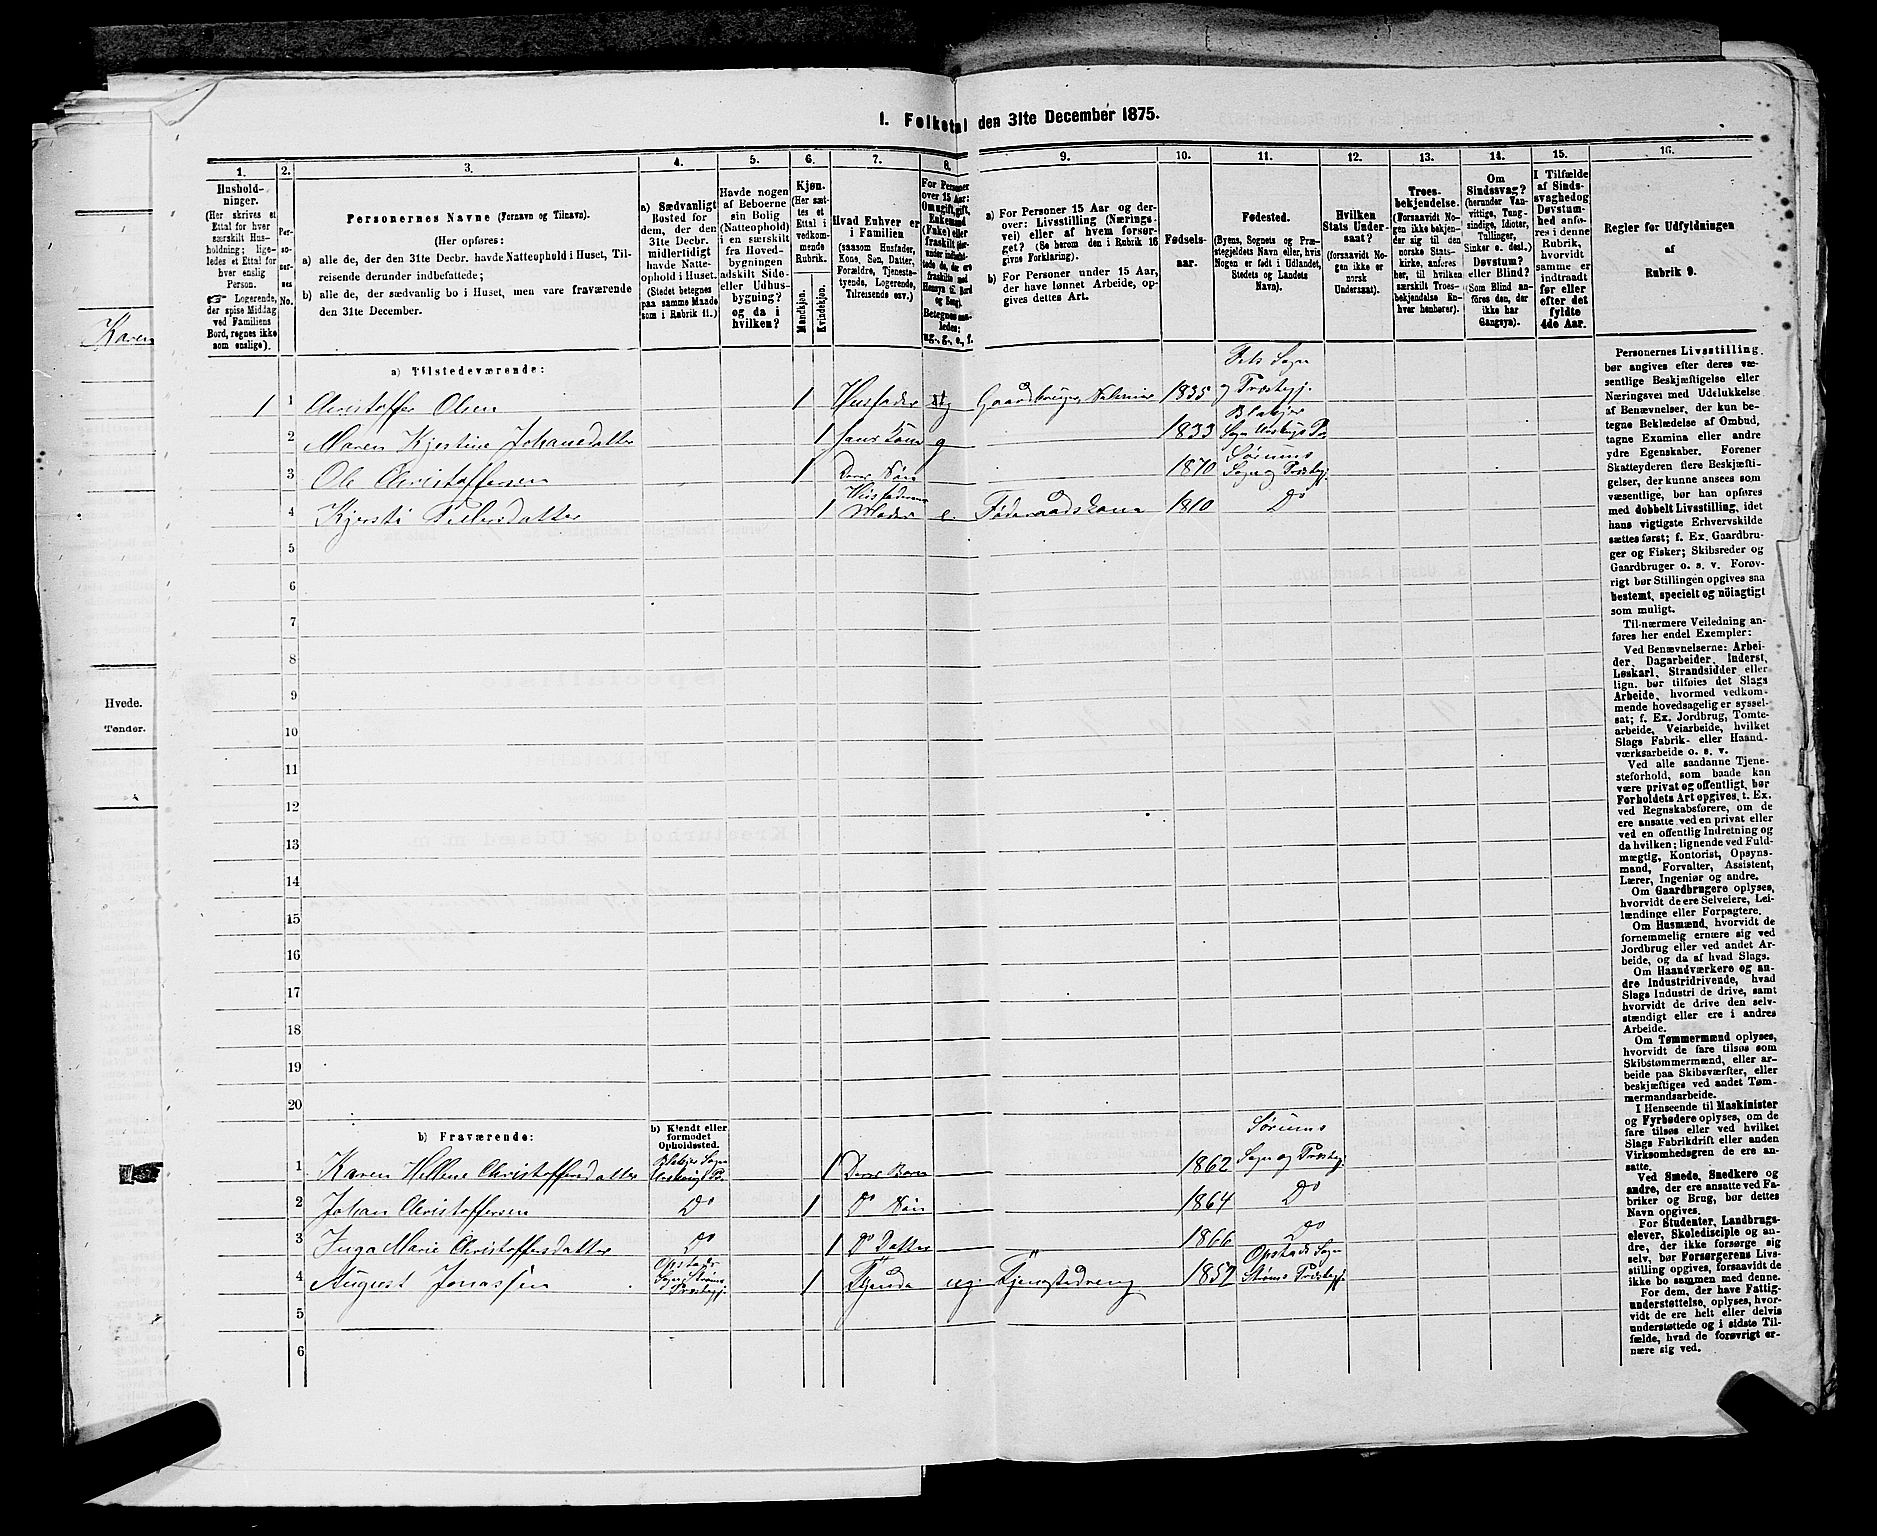 1. Folketal den 31te December 1875.
1.
2.
3.
4.
5.
6.
7.
8.
9.
10.
11.
12.
13.
14.
15.
16.
Hushold-
ninger.
(Her skrives et
Ettal for hver
særskilt Hus-
holdning; lige-
ledes et Ettal for
hver enslig
Person.
☞ Logerende,
der spise Middag
ved Familiens
Bord, regnes ikke
som enslige).
Per-
so-
ner-
nes
No.
Personernes Navne (Fornavn og Tilnavn).
(Her opføres:
a) alle de, der den 31te Decbr. havde Natteophold i Huset, Til-
reisende derunder indbefattede;
b) alle de, der sædvanlig bo i Huset, men vare fraværende
den 31te December.
a) Sædvanligt
Bosted for
dem, der den
31te Decbr.
midlertidigt
havde Natte-
ophold i Huset.
(Stedet betegnes
paa samme Maade
som i Rubrik 11.)
Havde nogen
af Beboerne
sin Bolig
(Natteophold)
i en særskilt
fra Hoved-
bygningen
adskilt Side-
eller Udhus-
bygning?
og da i
hvilken?
Kjøn.
(Her sæt-
tes et
Ettal i
vedkom-
mende
Rubrik.
Mandkjøn.
Kvindekjøn.
Hvad Enhver er
i Familien
(saasom Husfader,
Kone, Søn, Datter,
Forældre, Tjeneste-
tyende, Logerende,
Tilreisende osv.)
For Personer
over 15 Aar:
Om ugift, gift,
Enkemand
(Enke) eller
fraskilt
Betegnes saa-
ledes:
ug., g., e., f.
a) For Personer 15 Aar og der-
over: Livsstilling (Nærings-
vei) eller af hvem forsør-
get? (Se herom den i Rubrik 16
givne Forklaring).
b) For Personer under 15 Aar,
der have lønnet Arbeide, op-
gives dettes Art.
Fødsels-
aar.
Fødested.
(Byens, Sognets og Præ-
stegjeldets Navn eller, hvis
Nogen er født i Udlandet,
Stedets og Landets
Navn).
Hvilken
Stats Under-
saat?
(forsaavidt No-
gen ikke er
norsk
Undersaat).
Troes-
bekjendelse.
(Forsaavidt No-
gen ikke bekjen-
der sig til den
norske Stats-
kirke, anføres
her, til hvilken
særskilt Troes-
bekjendelse En-
hver henhører).
Om
Sindssvag?
(herunder Van-
vittige, Tung-
sindige, Idioter,
Tullinger,
Sinker o. desl.)
Døvstum?
eller Blind?
(Som Blind an-
føres den, der
ikke har
Gangsyn).
I Tilfælde
af Sinds-
svaghed og
Døvstum-
hed anfø-
res i denne
Rubrik,
hvorvidt
samme er
indtraadt
før eller
efter det
fyldte
4de Aar.
Regler for Udfyldningen
af
Rubrik 9.
a) Tilstedeværende:
1 1 Christoffer Olsen 1 Husfader g Gaardbruger, Selveier 1835 Fets Sogn og Præstegj.
2 Maren Kjerstine Johansdatter 1 hans Kone g 1833 Blakjer Sogn Urskougs Pr.
3 Ole Christoffersen 1 Deres Søn 1870 Sørums Sogn og Præstegj.
4 Kjersti Pedersdatter 1 Husfaderens Moder e. Føderaadskone 1810 Do
5
6
7
8
9
10
11
12
13
14
15
16
17
18
19
20
b) Fraværende:
b) Kjendt eller
formodet
Opholdssted.
1 Karen Hellene Christoffersdatter Blakjer Sogn Urskougs Pr. 1 Deres Barn 1862 Sørums Sogn og Præstegj.
2 Johan Christoffersen Do 1 Do Søn 1864 Do
3 Inga Marie Christoffersdatter Do 1 Do Datter 1866 Do
4 August Jonassen Opstads Sogn Strøms Præstegj. 1 Tjener ug. Tjenestedreng 1857 Opstads Sogn Strøms Præstegj.
5
6
Personernes Livsstilling
bør angives efter deres væ-
sentlige Beskjæftigelse eller
Næringsvei med Udelukkelse
af Benævnelser, der kun be-
tegne Beklædelse af Ombud,
tagne Examina eller andre
ydre Egenskaber. Forener
Skatteyderen flere Beskjæfti-
gelser, der kunne ansees som
væsentlige, bør han opføres
med dobbelt Livsstilling, idet
hans vigtigste Erhvervskilde
sættes først; f. Ex. Gaardbru-
ger og Fisker; Skibsreder og
Gaardbruger o. s. v. Forøv-
rigt bør Stillingen opgives saa
bestemt, specielt og nöiagtigt
som muligt.
Til nærmere Veiledning an-
føres her endel Exempler:
Ved Benævnelserne: Arbei-
der, Dagarbeider, Inderst,
Løskarl, Strandsidder eller
lign. bør tilføies det Slags
Arbeide, hvormed vedkom-
mende hovedsagelig er syssel-
sat; f. Ex. Jordbrug, Tomte-
arbeide, Veiarbeide, hvilket
Slags Fabrik- eller Haand-
værksarbeide o. s. v.
Ved alle saadanne Tjene-
steforhold, som baade kan
være privat og offentligt, bør
Forholdets Art opgives, t. Ex.
ved Regnskabsførere, om de
ere ansatte ved en privat eller
ved en offentlig Indretning og
da hvilken; lignende ved Fuld-
mægtig, Kontorist, Opsyns-
mand, Forvalter, Assistent,
Lærer, Ingeniør og andre.
Om Gaardbrugere oplyses,
hvorvidt de ere Selveiere, Lei-
lændinge eller Forpagtere.
Om Husmænd, hvorvidt de
fornemmelig ernære sig ved
Jordbrug eller ved andet Ar-
beide, og da af hvad Slags.
Om Haandværkere og an-
dre Industridrivende, hvad
Slags Industri de drive, samt
hvorvidt de drive den selv-
stændigt eller ere i andres
Arbeide.
Om Tømmermænd oplyses,
hvorvidt de fare tilsøs som
Skibstømmermænd, eller ar-
beide paa Skibsværfter, eller
beskjæftiges ved andet Tøm-
mermandsarbeide.
I Henseende til Maskinister
og Fyrbødere oplyses, om de
fare tilsøs eller ved hvilket
Slags Fabrikdrift eller anden
Virksomhedsgren de ere an-
satte.
Ved Smede, Snedkere og
andre, der ere ansatte ved Fa-
briker og Brug, bør dettes
Navn opgives.
For Studenter, Landbrugs-
elever, Skoledisciple og an-
dre, der ikke forsørge sig
selv, bør Forsørgerens Livs-
stilling opgives, forsaavidt de
ikke bo sammen med denne.
For dem, der have Fattig-
understøttelse, oplyses, hvor-
vidt de ere helt eller delvis
understøttede og i sidste Til-
fælde, hvad de forøvrigt er-
nære sig ved.
Karen
Hvede.
Tønder.